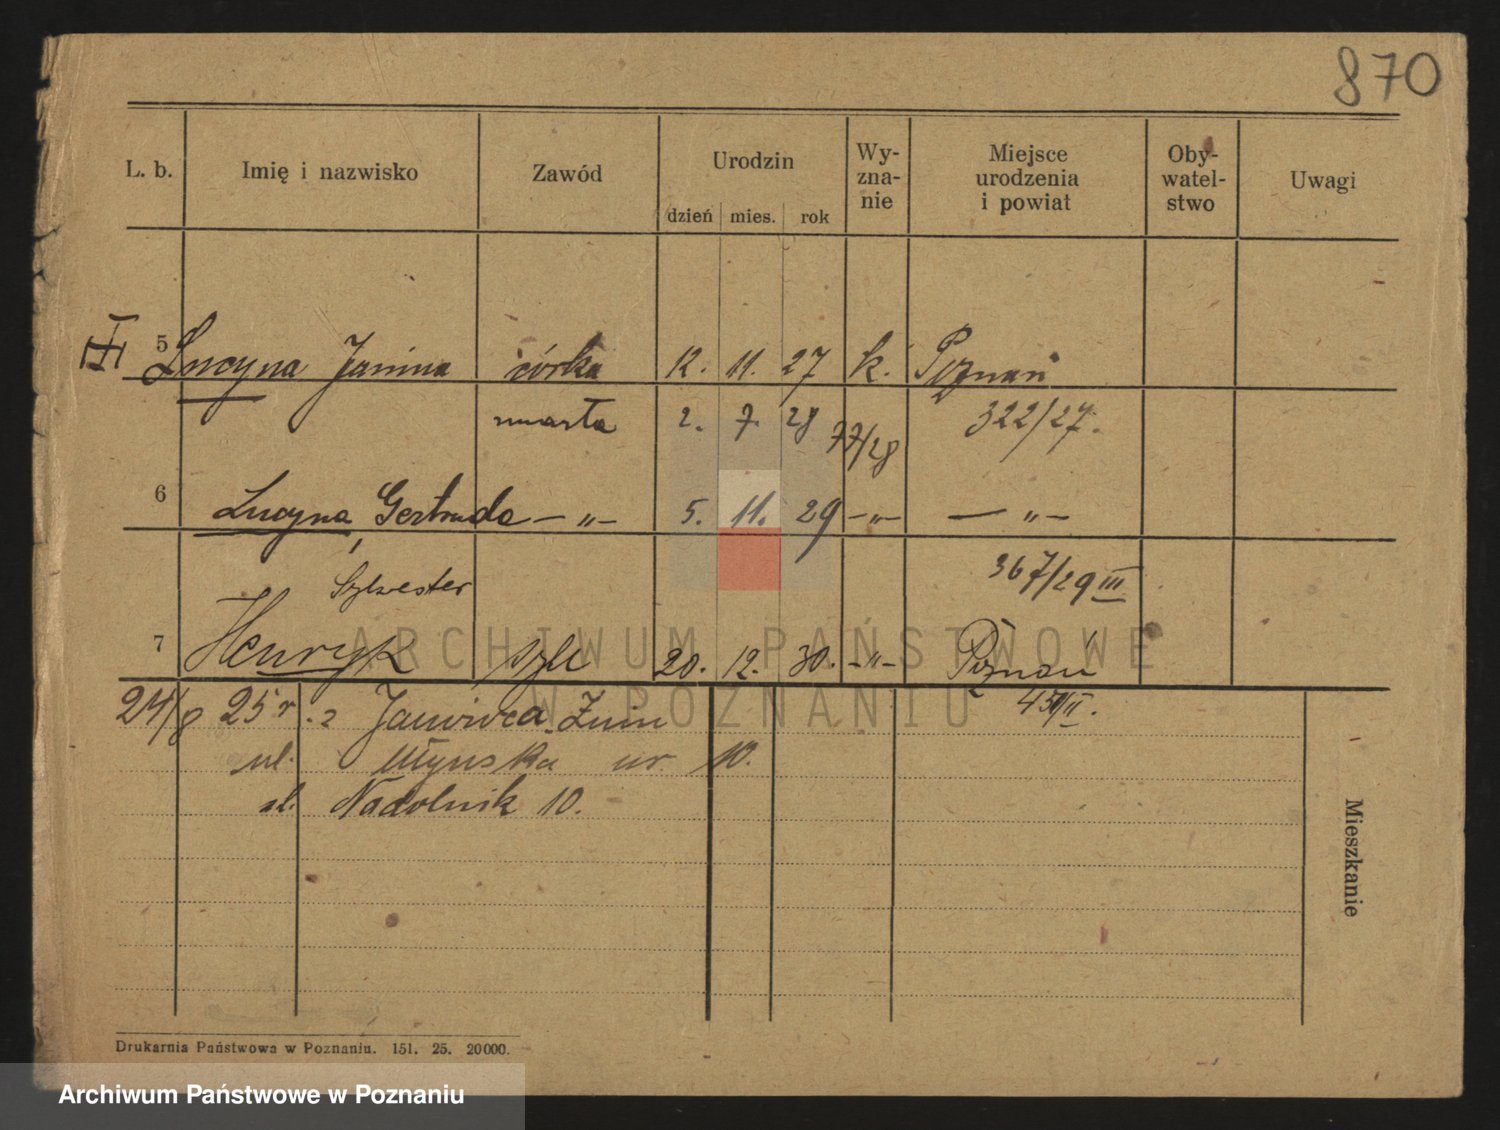 870
L. b. Imię i nazwisko Zawód Urodzin dzień mies. rok Wy- zna- nie Miejsce urodzenia i powiat Oby- watel- stwo Uwagi
5 Lucyna Janina córka 12. 11. 27 k. Poznań
zmarła 2. 7. 28 77/28 322/27.
6 Lucyna, Gertruda — „ — 5. 11. 29 — „ — — „ —
367/29 III
Sylwester
7 Henryk syn 20. 12. 30. — „ — Poznań
24/8 25 r. z Janowca Żnin
ul. Młyńska nr. 10.
ul. Nadolnik 10.
Mieszkanie
Drukarnia Państwowa w Poznaniu. 151. 25. 20000.
ARCHIWUM PAŃSTWOWE
W POZNANIU
Archiwum Państwowe w Poznaniu